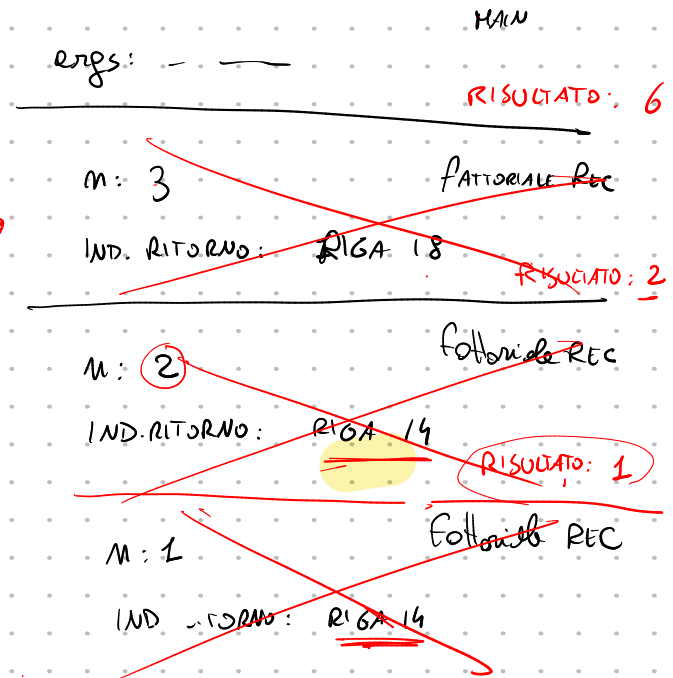 MAIN
args: - —
RISULTATO: 6
n: 3 FATTORIALE REC
IND. RITORNO: RIGA 18
RISULTATO: 2
n: 2 fattoriale REC
IND. RITORNO: RIGA 14
RISULTATO: 1
n: 1 fattoriale REC
IND RITORNO: RIGA 14